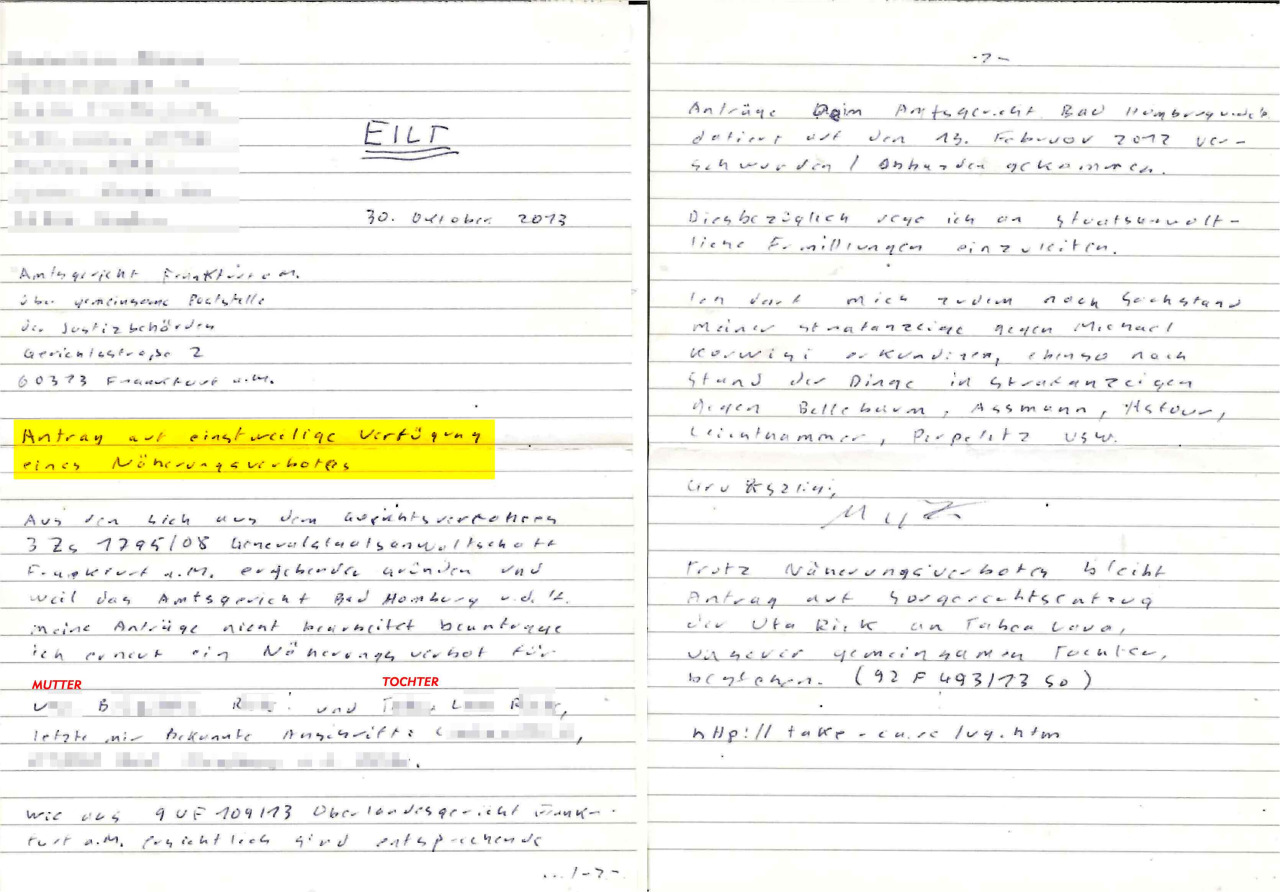 EILT
30. Oktober 2013
Amtsgericht Frankfurt a.M.
über gemeinsame Poststelle
der Justizbehörden
Gerichtsstraße 2
60313 Frankfurt a.M.
Antrag auf einstweilige Verfügung
eines Näherungsverbotes
Aus den sich aus dem
3 Zs 1795/08 Generalstaatsanwaltschaft
Frankfurt a.M. ergebenden Gründen und
weil das Amtsgericht Bad Homburg v.d.H.
meine Anträge nicht bearbeitet beantrage
ich erneut ein Näherungsverbot für
MUTTER TOCHTER
und
letzte mir bekannte Anschrift:
Wie aus 9 UF 109/13 Oberlandesgericht Frank-
furt a.M. ersichtlich sind entsprechende
...1-2-
-2-
Anträge beim Amtsgericht Bad Homburg v.d.H.
datiert auf den 13. Februar 2012 ver-
schwunden / abhanden gekommen.
Diesbezüglich rege ich an staatsanwalt-
liche Ermittlungen einzuleiten.
Ich darf mich zudem nach Sachstand
meiner Strafanzeige gegen Michael
Korwisi erkundigen, ebenso nach
Stand der Dinge in Strafanzeigen
gegen Bellebaum, Assmann,
usw.
Trotz Näherungsverbotes bleibt
Antrag auf Sorgerechtsentzug
der Uta Rick an Tabea Lara,
unserer gemeinsamen Tochter,
bestehen. (92 F 493/13 SO)